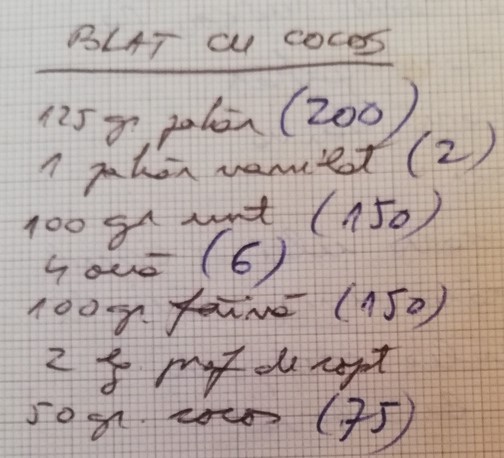 BLAT CU COCOS
125 gr zahăr (200)
1 zahăr vanilat (2)
100 gr unt (150)
4 ouă (6)
100 gr. făină (150)
2 lg. praf de copt
50 gr. cocos (75)